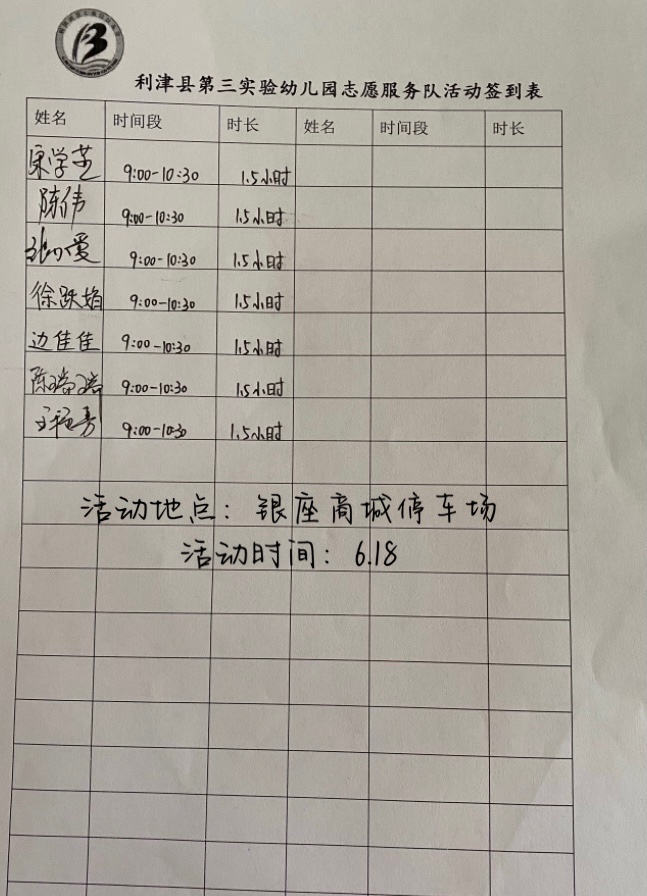 利津县第三实验幼儿园志愿服务队活动签到表
姓名 时间段 时长 姓名 时间段 时长
宋学芝 9:00-10:30 1.5小时
陈伟 9:00-10:30 1.5小时
9:00-10:30 1.5小时
徐跃娟 9:00-10:30 1.5小时
边佳佳 9:00-10:30 1.5小时
陈瑞瑞 9:00-10:30 1.5小时
9:00-10:30 1.5小时
活动地点：银座商城停车场
活动时间：6.18